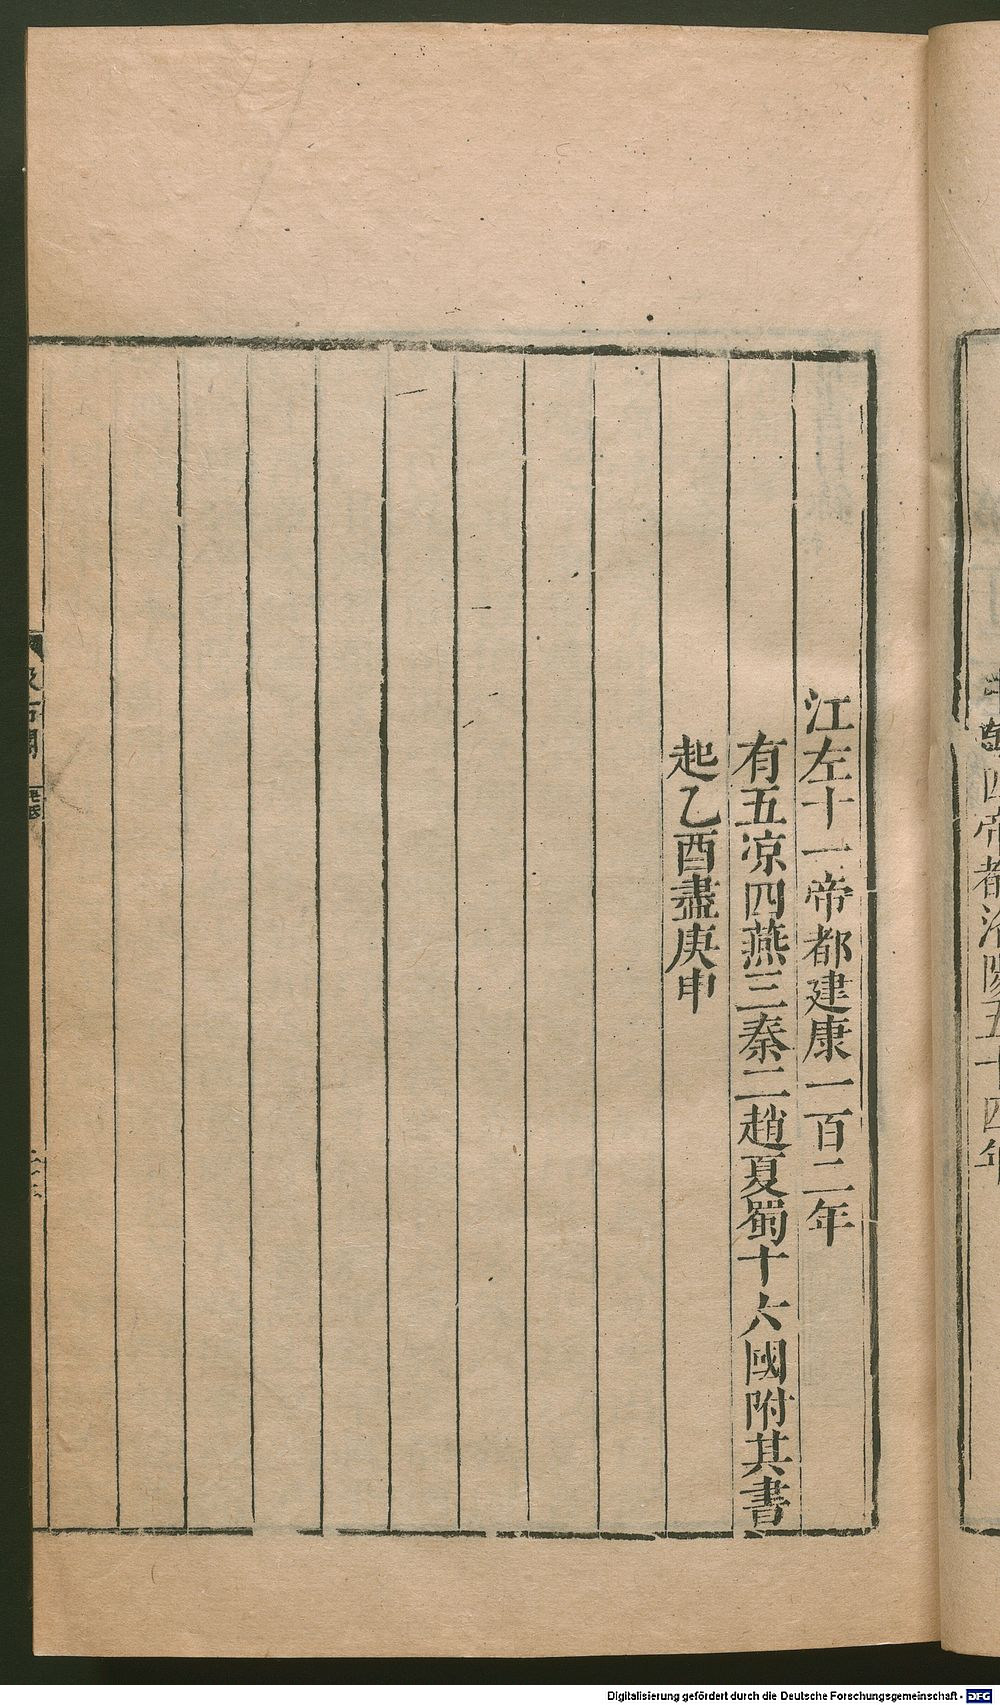 四帝都洛陽五十四年
江左十一帝都建康一百二年
有五凉四燕三秦二趙夏蜀十六國附其書
起乙酉盡庚申
Digitalisierung gefördert durch die Deutsche Forschungsgemeinschaft - DFG